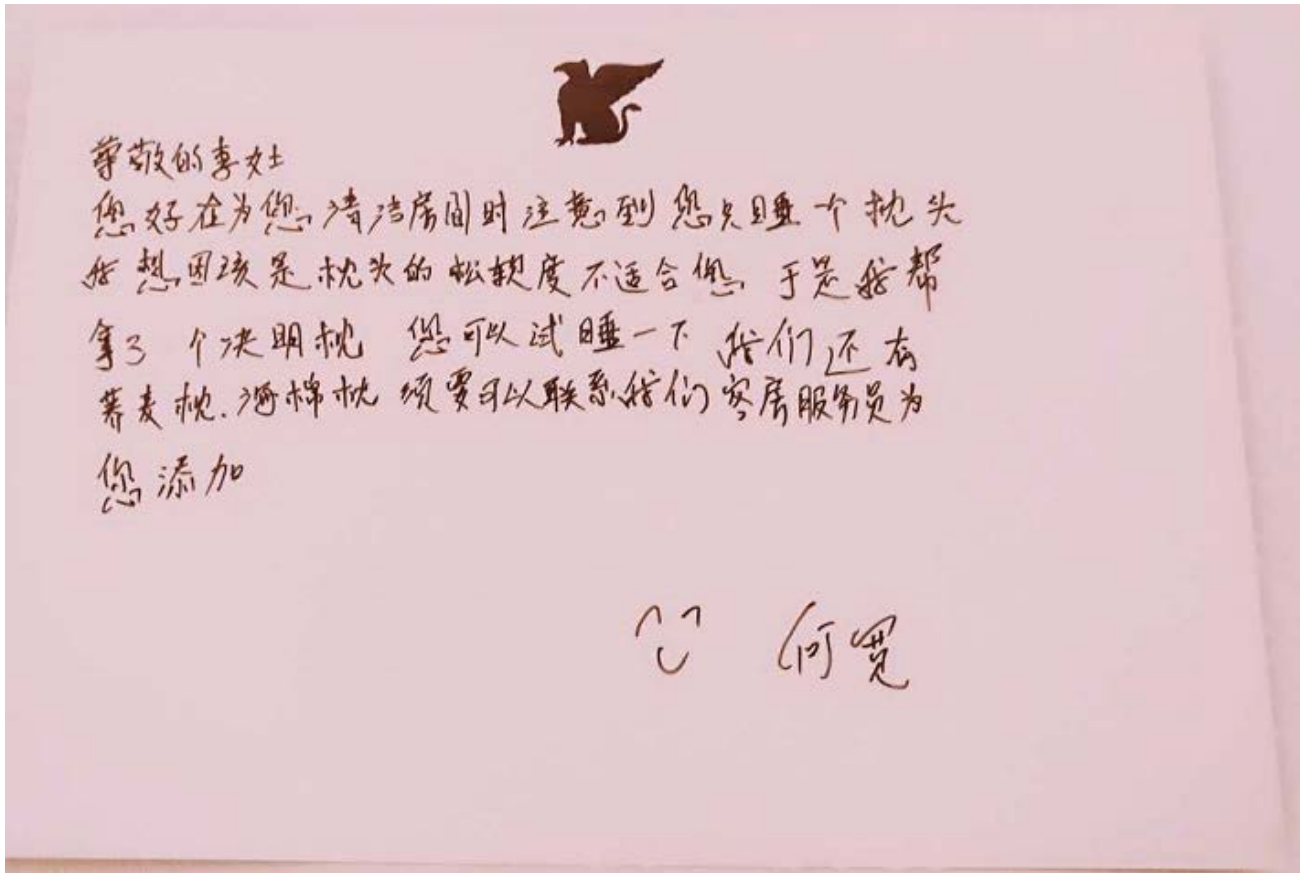 尊敬的李女士
您好在为您清洁房间时注意到您只睡一个枕头
我想因该是枕头的松软度不适合您 于是我帮
拿了 个决明枕 您可以试睡一下 我们还有
荞麦枕.海棉枕 须要可以联系我们客房服务员为
您添加
何宽